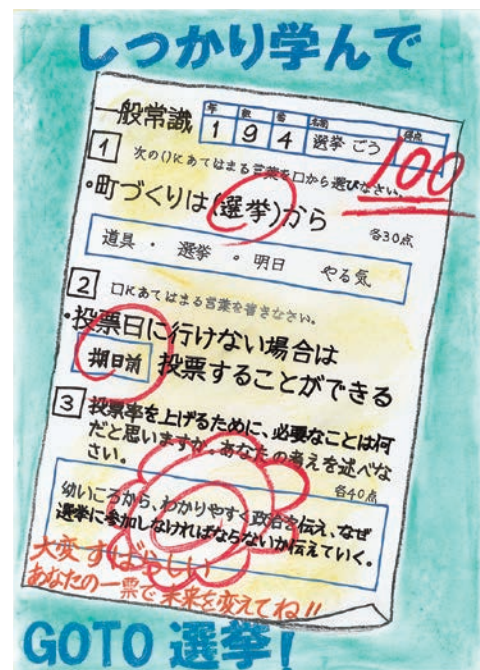 しっかり学んで
一般常識
年 組 番 名前 得点
1 9 4 選挙 ごう 100
1 次の()にあてはまる言葉を口から選びなさい。
・町づくりは(選挙)から
各30点
道具・選挙・明日 やる気
2 口にあてはまる言葉を書きなさい。
・投票日に行けない場合は
期日前 投票することができる
3 投票率を上げるために、必要なことは何
だと思いますか。あなたの考えを述べな
さい。
各40点
幼いころから、わかりやすく政治を伝え、なぜ
選挙に参加しなければならないか伝えていく。
大変 すばらしい
あなたの一票で未来を変えてね!!
GOTO 選挙!